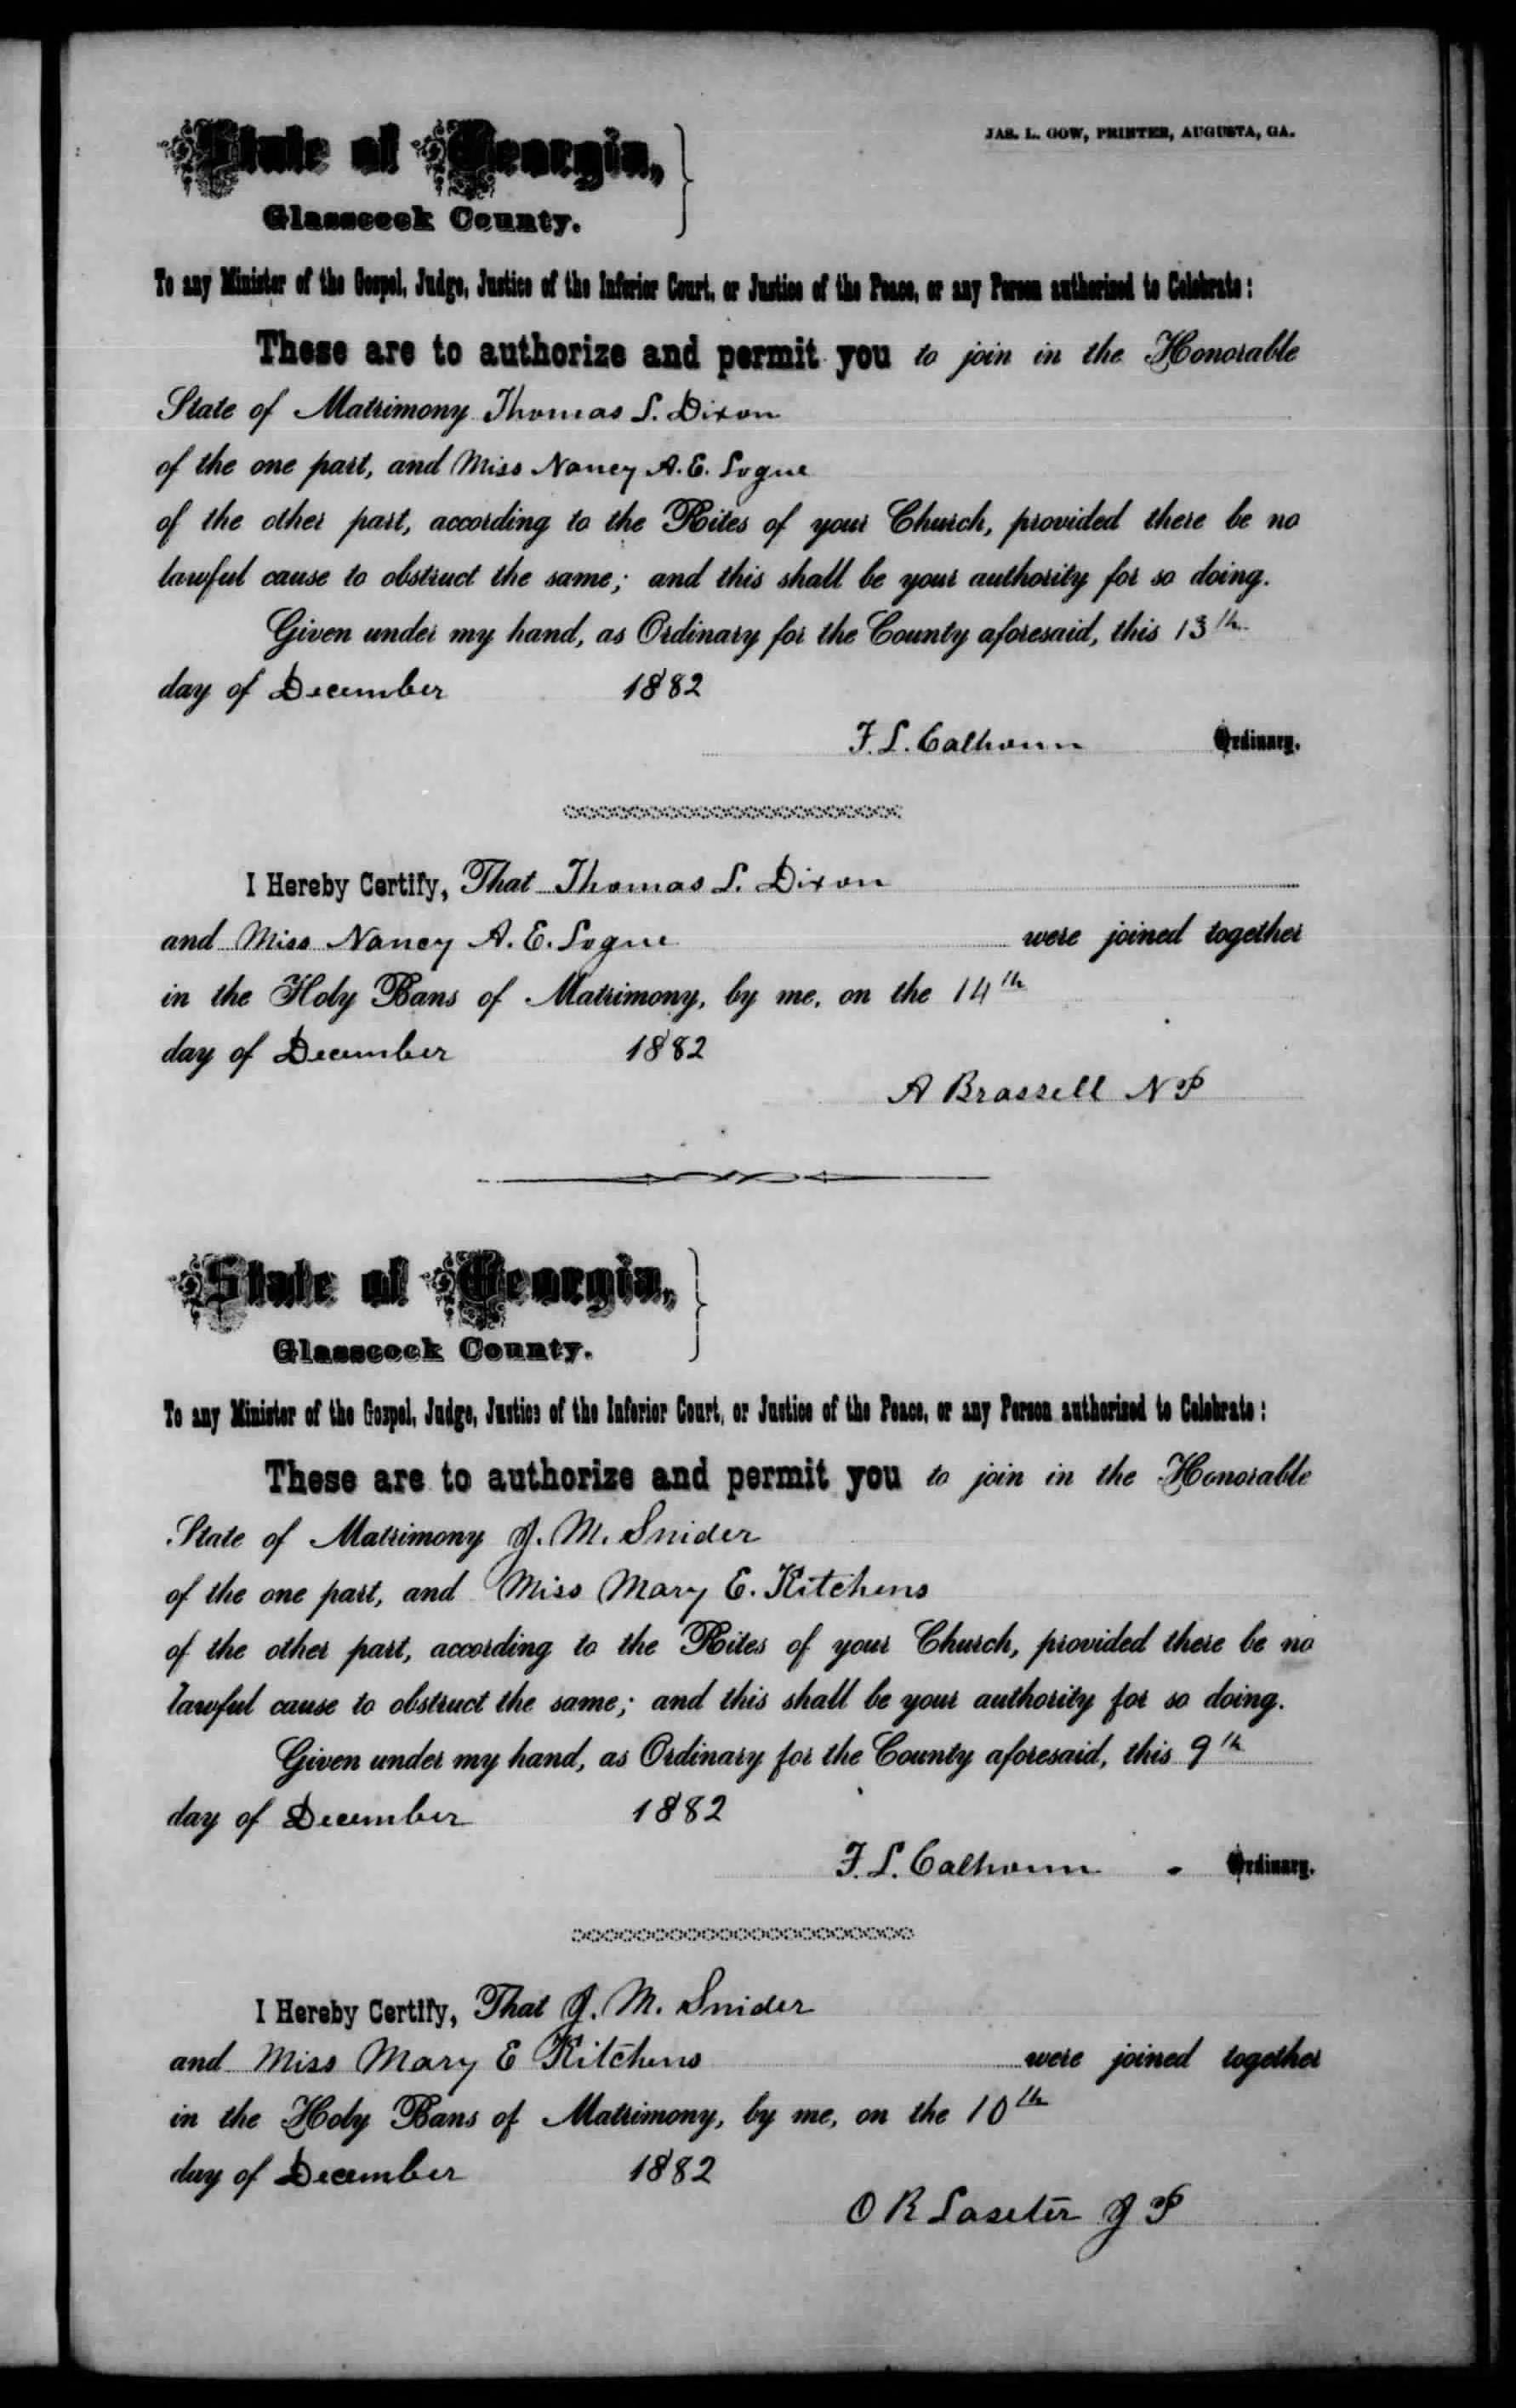 JAS. L. GOW, PRINTER, AUGUSTA, GA.
State of Georgia,
Glasscock County.
To any Minister of the Gospel, Judge, Justice of the Inferior Court, or Justice of the Peace, or any Person authorized to Celebrate:
These are to authorize and permit you to join in the Honorable
State of Matrimony Thomas L. Dixon
of the one part, and Miss Nancy A. E. Logue
of the other part, according to the Rites of your Church, provided there be no
lawful cause to obstruct the same; and this shall be your authority for so doing.
Given under my hand, as Ordinary for the County aforesaid, this 13th
day of December 1882
F. L. Calhoun Ordinary.
I Hereby Certify, That Thomas L. Dixon
and Miss Nancy A. E. Logue were joined together
in the Holy Bans of Matrimony, by me, on the 14th
day of December 1882
A Brassell N P
State of Georgia,
Glasscock County.
To any Minister of the Gospel, Judge, Justice of the Inferior Court, or Justice of the Peace, or any Person authorized to Celebrate:
These are to authorize and permit you to join in the Honorable
State of Matrimony J. M. Snider
of the one part, and Miss Mary E. Kitchens
of the other part, according to the Rites of your Church, provided there be no
lawful cause to obstruct the same; and this shall be your authority for so doing.
Given under my hand, as Ordinary for the County aforesaid, this 9th
day of December 1882
F. L. Calhoun Ordinary.
I Hereby Certify, That J. M. Snider
and Miss Mary E Kitchens were joined together
in the Holy Bans of Matrimony, by me, on the 10th
day of December 1882
O R Laseter J P